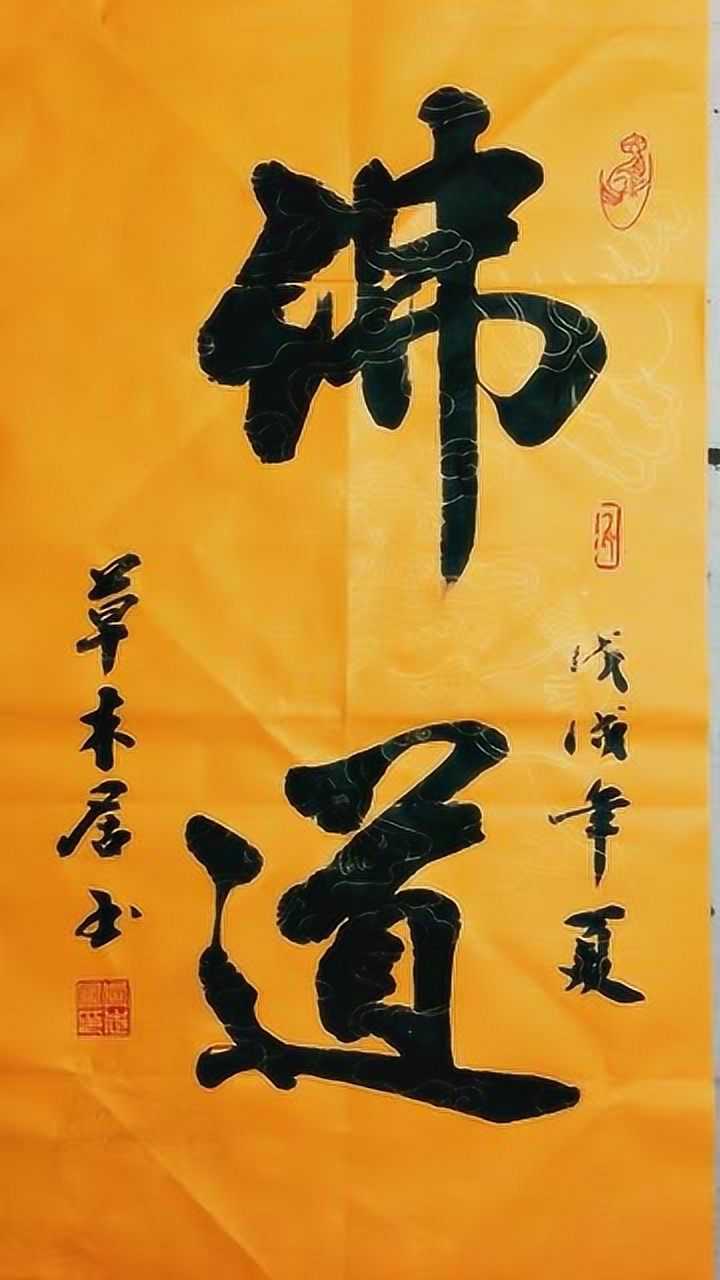 佛道
戊戌年夏
草木居书